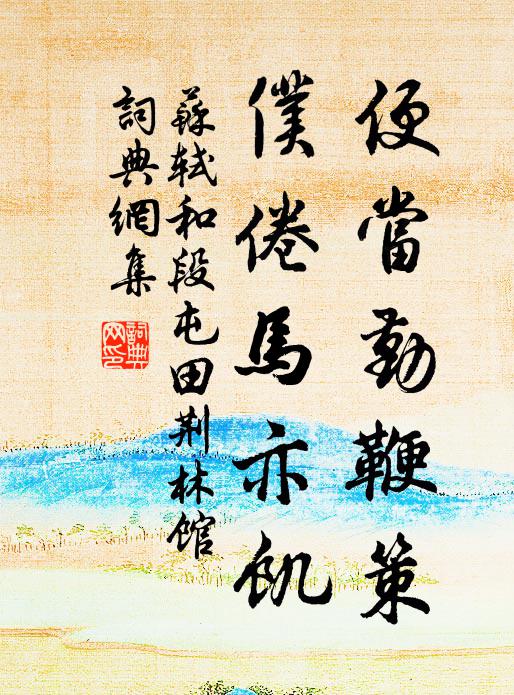 便當勤鞭策
僕倦馬亦飢
蘇軾和段屯田荆林馆
詞典網集
詞典网印